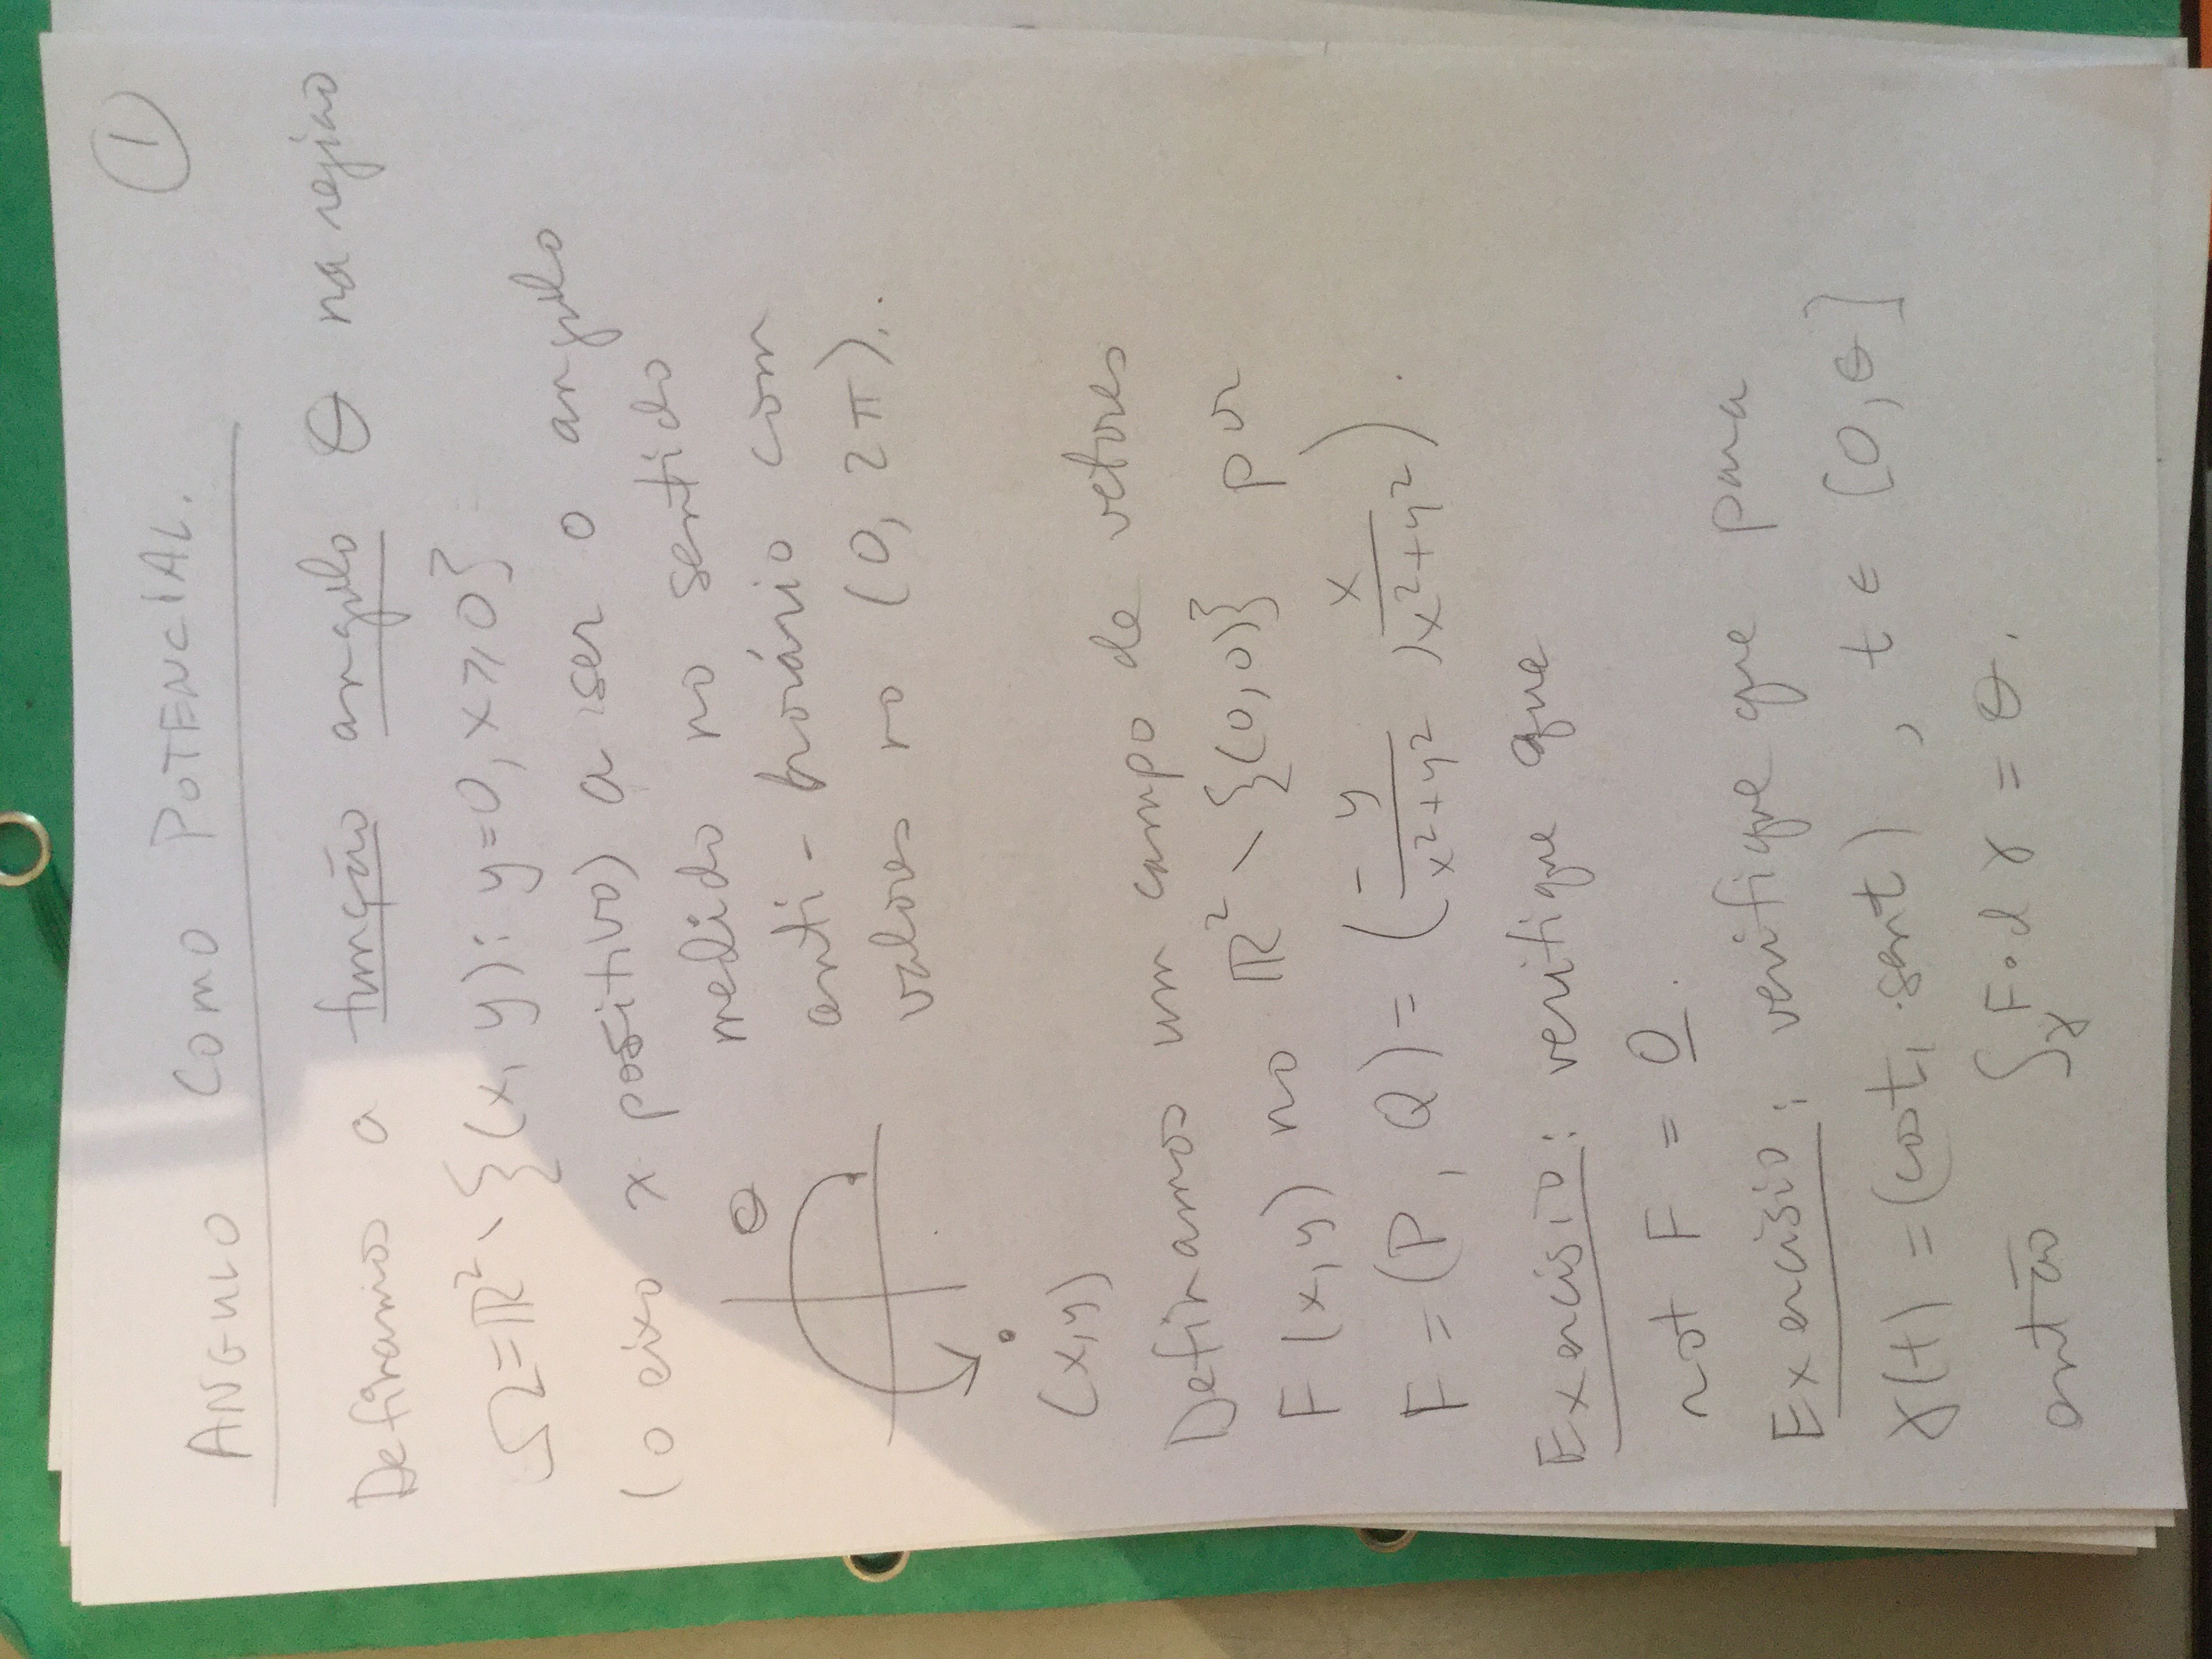 ①
ANGULO COMO POTENCIAL.
Definamos a função angulo θ na região
Ω = ℝ² \ {(x, y): y=0, x ≥ 0}
(o eixo x positivo) a ser o angulo
medido no sentido
anti-horário com
valores no (0, 2π).
θ
(x,y)
Definamos um campo de vetores
F(x,y) no ℝ² \ {(0,0)} por
F = (P, Q) = (-y/(x²+y²), x/(x²+y²)).
Exercísio: verifique que
rot F = 0.
Exercísio: verifique que para
γ(t) = (cost, sent), t ∈ [0, θ]
então ∫_γ F·dγ = θ.